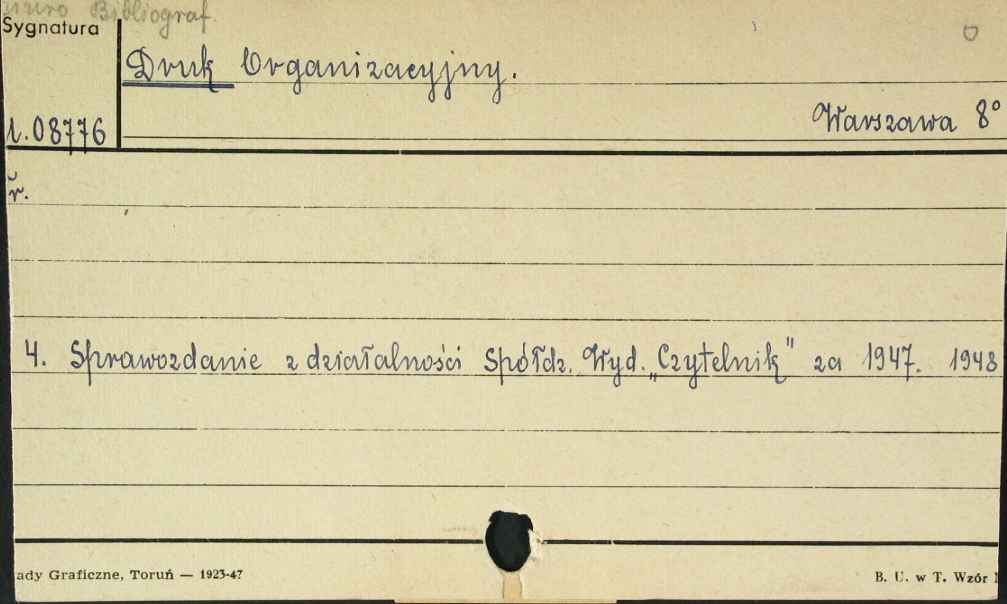 Biuro Bibliograf.
Sygnatura
Druk Organizacyjny.
Warszawa 8°
1.08776
ř.
4. Sprawozdanie z działalności Spółdz. Wyd. „Czytelnik" za 1947. 1948
ady Graficzne, Toruń — 1923-47
B. U. w T. Wzór